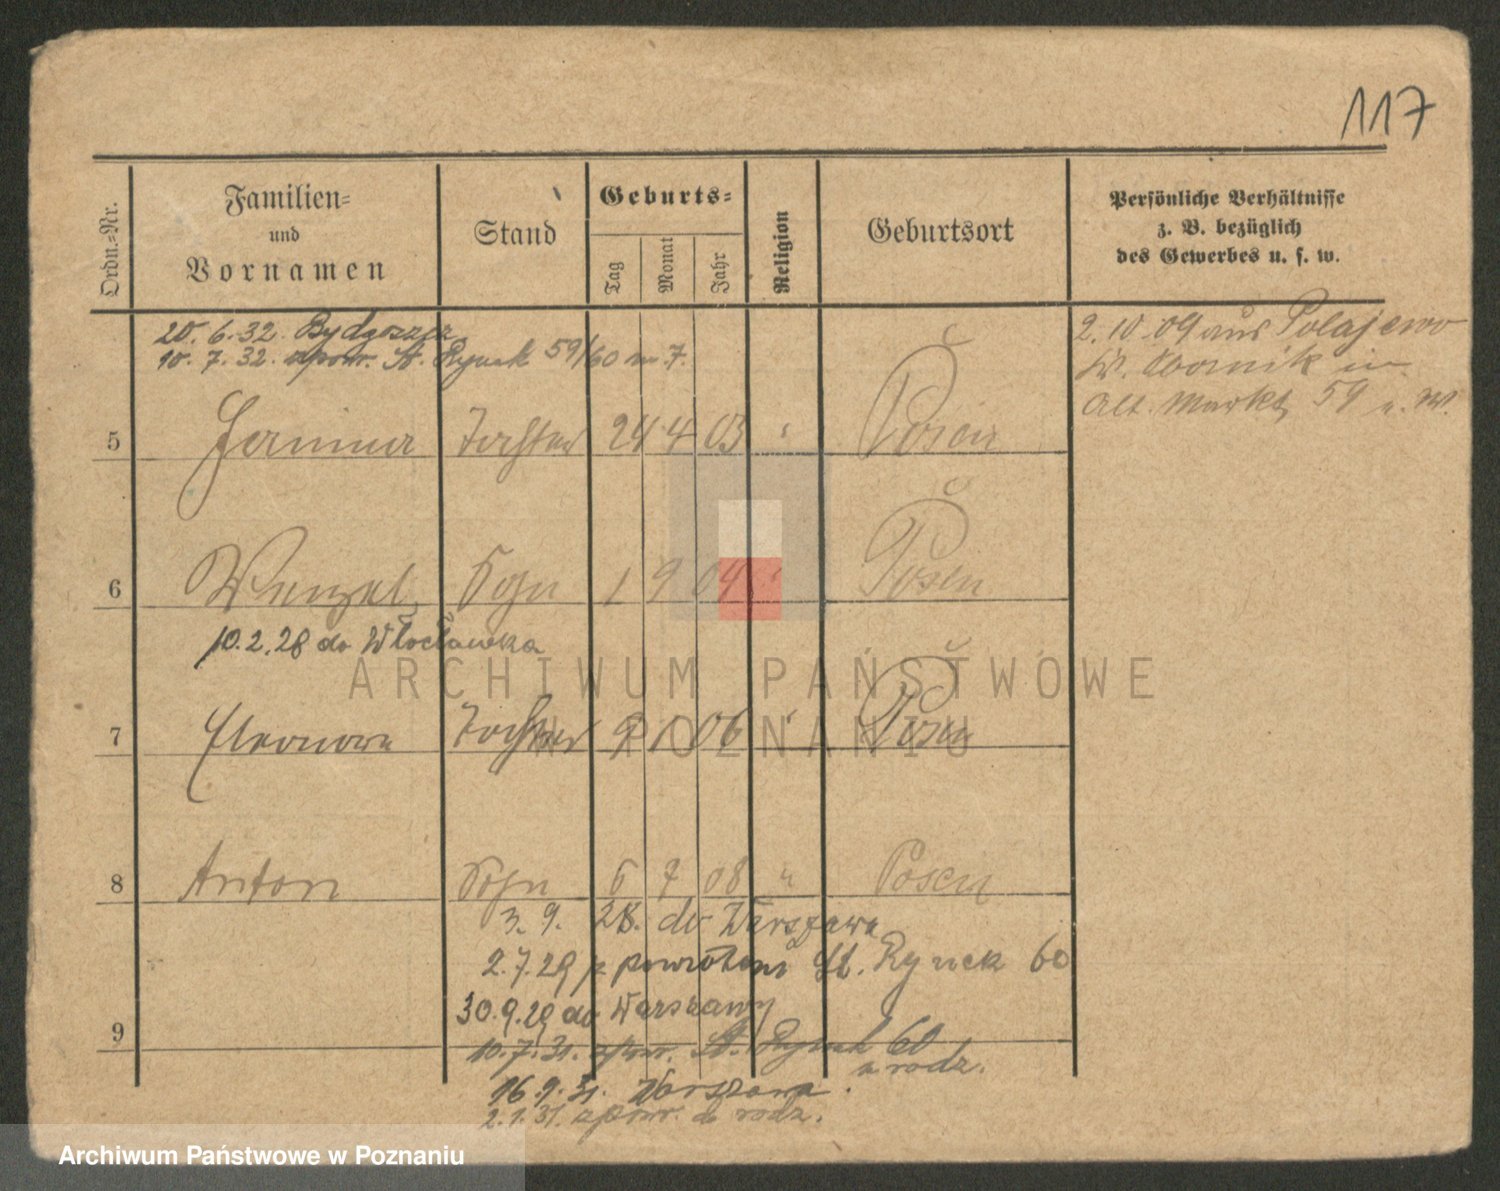 117
Ordn.=Nr.
Familien=
und
Vornamen
Stand
Geburts=
Tag
Monat
Jahr
Religion
Geburtsort
Persönliche Verhältnisse
z. B. bezüglich
des Gewerbes u. s. w.
20. 6. 32. Bydgoszcz
10. 7. 32. zpow. St. Rynek 59/60 m 7.
2. 10. 09 aus Polajewo
Kr. Obornik in
Alt. Markt 59 b. W.
5 Janina Tochter 24 4 03 Posen
6 Wenzel Sohn 1 9 04 " Posen
10. 2. 28 do Włocławka
7 Eleonora Tochter 9 1 06 " Posen
8 Anton Sohn 6 7 08 " Posen
3. 9. 28. do Warszawa
2. 7. 29 z powrotem St. Rynek 60
30. 9. 29 do Warszawy
9
10. 7. 31. zpow. St. Rynek 60
u rodz.
16. 9. 31. Warszawa
2. 1. 31. zpow. do rodz.
ARCHIWUM PAŃSTWOWE
W POZNANIU
Archiwum Państwowe w Poznaniu